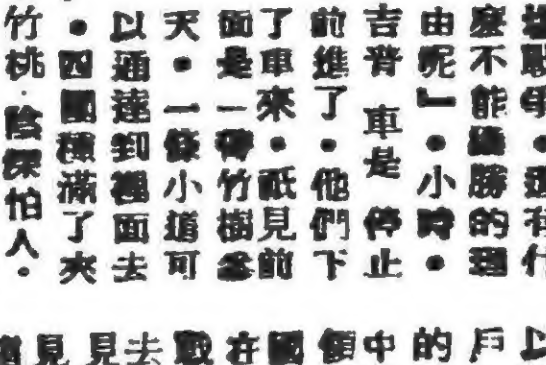 爭。還有什
麼不能戰勝的理
由呢』。小時
吉普 車是 停止
前進了。他們下
了車來。祇見前
面是一帶竹樹參
天。一條小道可
以通達到裡面去
。四圍種滿了夾
竹桃.陰深怕人。
以
戶
的
中
領
國
在
戰
去
見
見